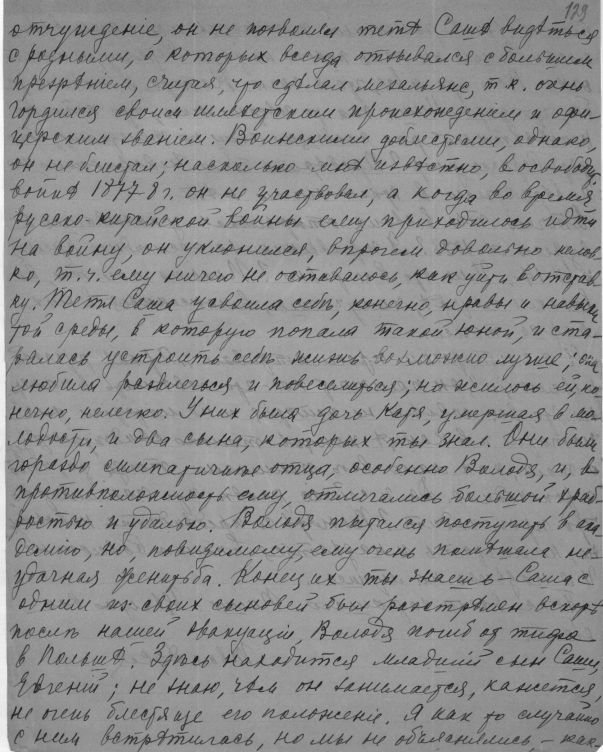 129
отчужденіе, он не позволял тетѣ Сашѣ видѣться
с родными, о которых всегда отзывался с большим
презрѣнiем, считая, что сдѣлал мезальянс, т.к. очень
гордился своим шляхетским происхожденiем и офи-
церским званiем. Воинскими доблестями, однако,
он не блистал; насколько мнѣ извѣстно, в освободит.
войнѣ 1877-8 г. он не участвовал, а когда во время
русско-китайской войны ему приходилось идти
на войну, он уклонился, впрочем довольно нелов-
ко, т.ч. ему ничего не оставалось, как уйти в отстав-
ку. Тетя Саша усвоила себѣ, конечно, нравы и навыки
той среды, в которую попала такой юной, и ста-
ралась устроить себѣ жизнь возможно лучше; она
любила развлечься и повеселиться; но жилось ей, ко-
нечно, нелегко. У них была дочь Катя, умершая в мо-
лодости, и два сына, которых ты знал. Они были
гораздо симпатичнѣе отца, особенно Володя, и, в
противположность ему, отличались большой храб-
ростью и удалью. Володя пытался поступить в ака-
демію, но, повидимому, ему очень помѣшала не-
удачная женитьба. Конец их ты знаешь – Саша с
одним из своих сыновей был разстрѣлен вскорѣ
послѣ нашей эвакуаціи, Володя погиб от тифа
в Польшѣ. Здѣсь находится младшій сын Саши,
Евгеній; не знаю, чѣм он занимается, кажется,
не очень блестяще его положеніе. Я как то случайно
с ним встрѣтилась, но мы не объяснялись – как